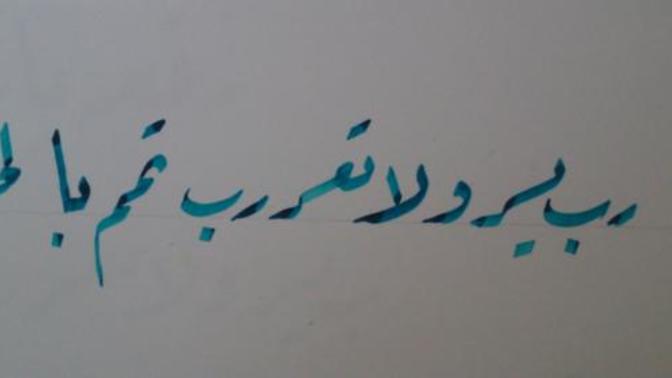 رب يسر ولا تعسر رب تمم با